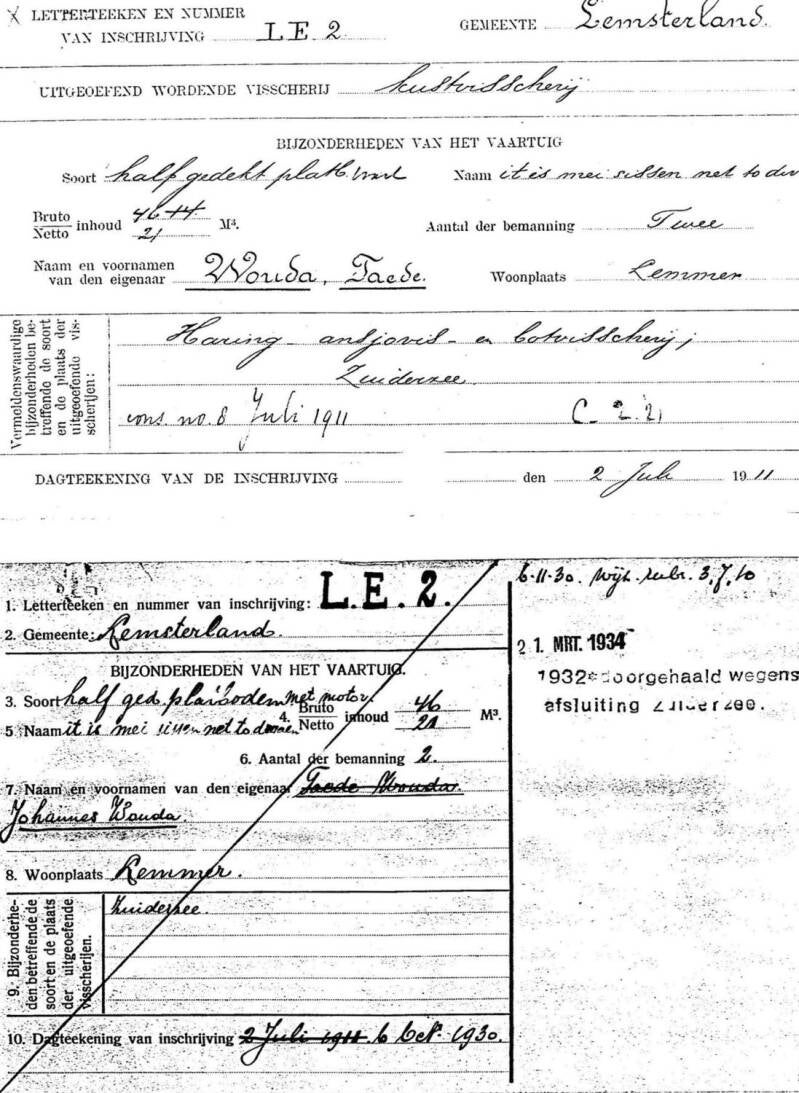 LETTERTEEKEN EN NUMMER
VAN INSCHRIJVING L E 2
GEMEENTE Lemsterland.
UITGEOEFEND WORDENDE VISSCHERIJ kustvisscherij
BIJZONDERHEDEN VAN HET VAARTUIG
Soort half gedekt platb. vaart Naam it is mei sissen net to dw
Bruto 46 14
Netto inhoud 21 M³.
Aantal der bemanning Twee
Naam en voornamen
van den eigenaar Wouda, Taede.
Woonplaats Lemmer
Vermeldenswaardige
bijzonderheden be-
treffende de soort
en de plaats der
uitgeoefende vis-
scherijen:
Haring - ansjovis - en botvisscherij;
Zuiderzee.
cons. no. 8 Juli 1911 C. 2. 21
DAGTEEKENING VAN DE INSCHRIJVING den 2 Juli 1911
1. Letterteeken en nummer van inschrijving: L.E.2.
2. Gemeente: Lemsterland.
BIJZONDERHEDEN VAN HET VAARTUIG.
3. Soort half ged. platbodem met motor
4. Bruto
Netto inhoud 46
21 M³.
5 Naam it is mei sissen net to dwaen
6. Aantal der bemanning 2.
7. Naam en voornamen van den eigenaar Taede Wouda.
Johannes Wouda.
8. Woonplaats Lemmer.
9. Bijzonderhe-
den betreffende de
soort en de plaats
der uitgeoefende
visscherijen.
Zuiderzee.
10. Dagteekening van inschrijving 2 Juli 1911 6 Oct. 1930.
6-11-30. Wijz. rubr. 3, 7, 10
21. MRT. 1934
1932 doorgehaald wegens
afsluiting Zuiderzee.